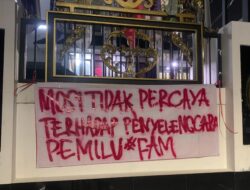 MOSI TIDAK PERCAYA
TERHADAP PENYELENGGARA
PEMILU#FAM